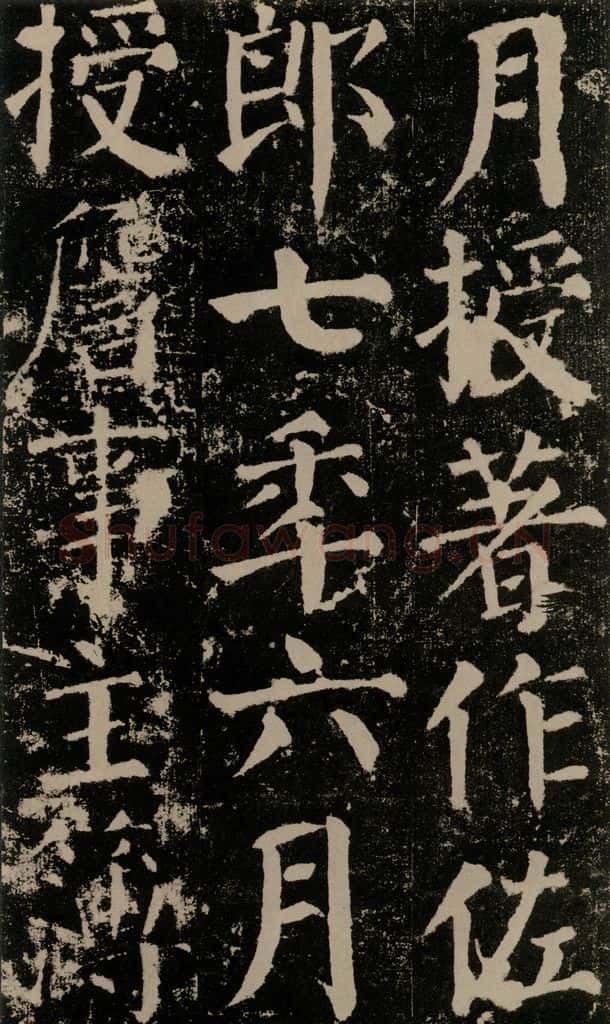 月授著作佐
郎七年六月
授詹事主簿
Shufawang.CN